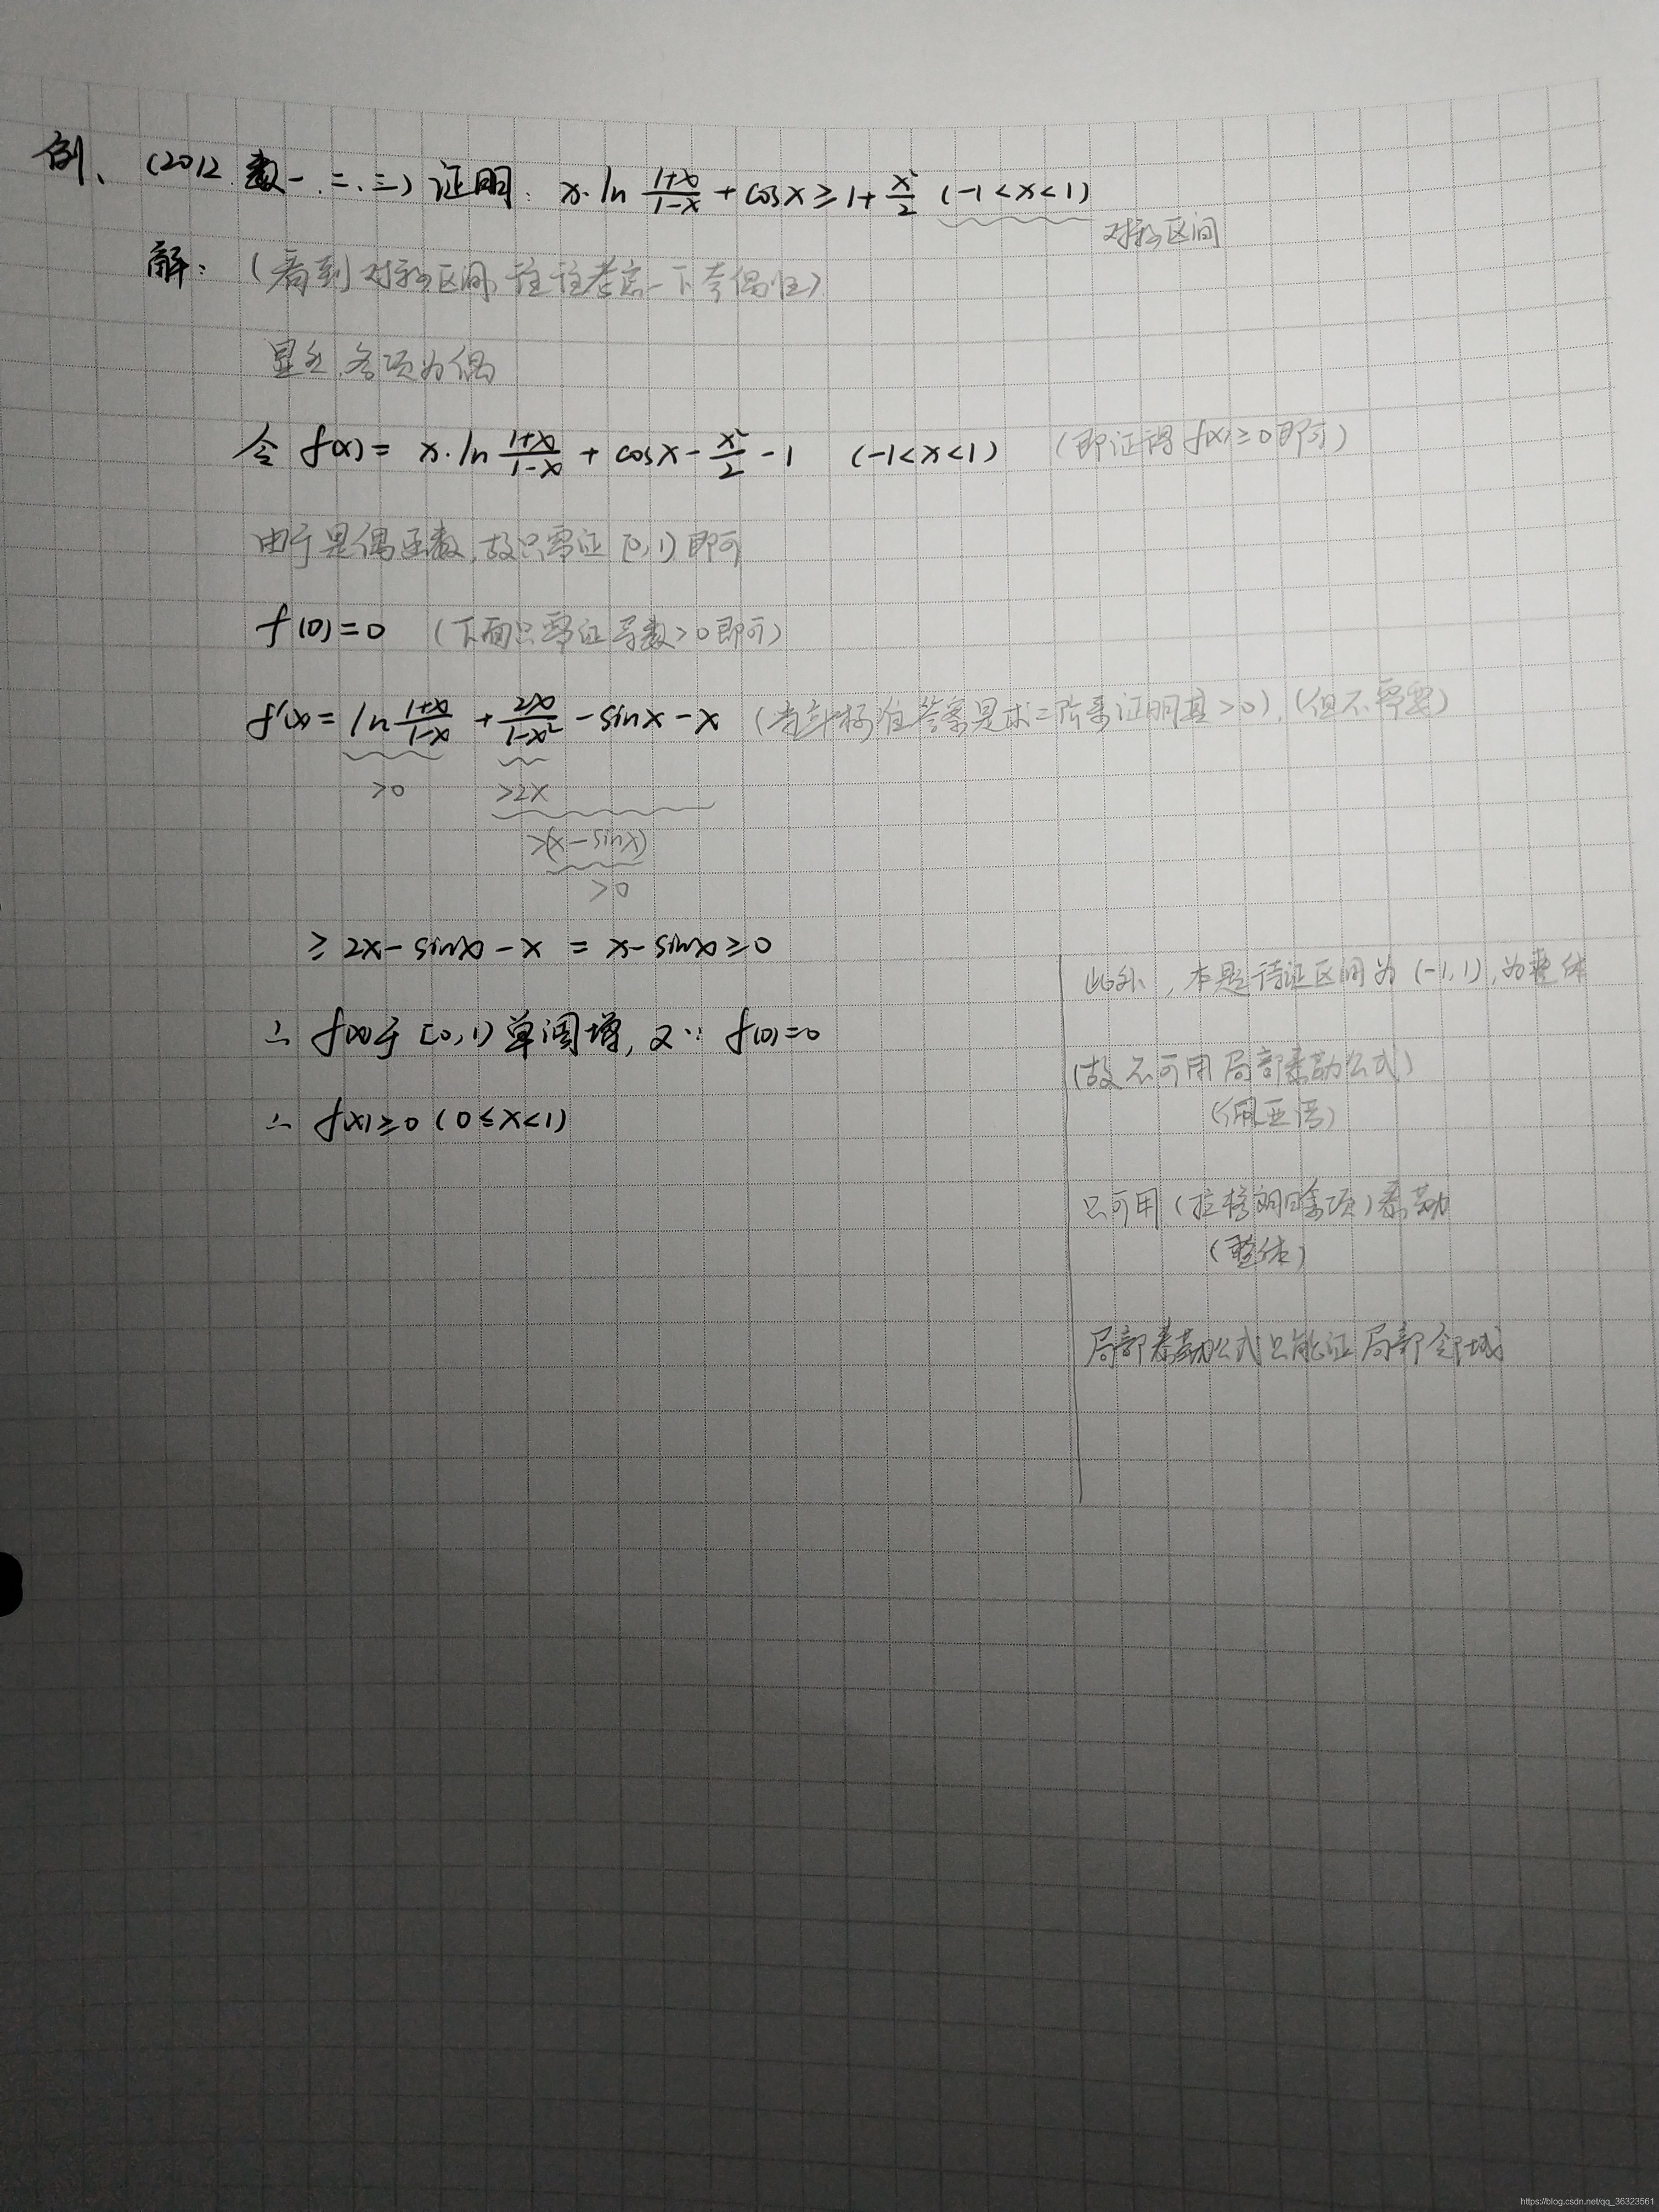 例、(2012.数一.二.三) 证明: x·ln (1+x)/(1-x) + cosx ≥ 1+ x²/2 (-1<x<1)
对称区间
解: (看到对称区间,往往考虑一下奇偶性)
显然,各项为偶
令 f(x) = x·ln (1+x)/(1-x) + cosx - x²/2 - 1 (-1<x<1) (即证得 f(x)≥0即可)
由于是偶函数,故只需证 [0,1) 即可
f(0)=0 (下面只需证导数>0即可)
f'(x) = ln (1+x)/(1-x) + 2x/(1-x²) - sinx - x (考纲标准答案是求二阶来证明其>0),(但不需要)
>0 >2x
>(x-sinx)
>0
≥ 2x - sinx - x = x - sinx ≥ 0
∴ f(x)于 [0,1) 单调增, 又∵ f(0)=0
∴ f(x)≥0 (0≤x<1)
此外,本题待证区间为 (-1,1),为整体
(故不可用局部泰勒公式)
(佩亚诺)
只可用 (拉格朗日余项) 泰勒
(整体)
局部泰勒公式只能证局部邻域
https://blog.csdn.net/qq_36323561